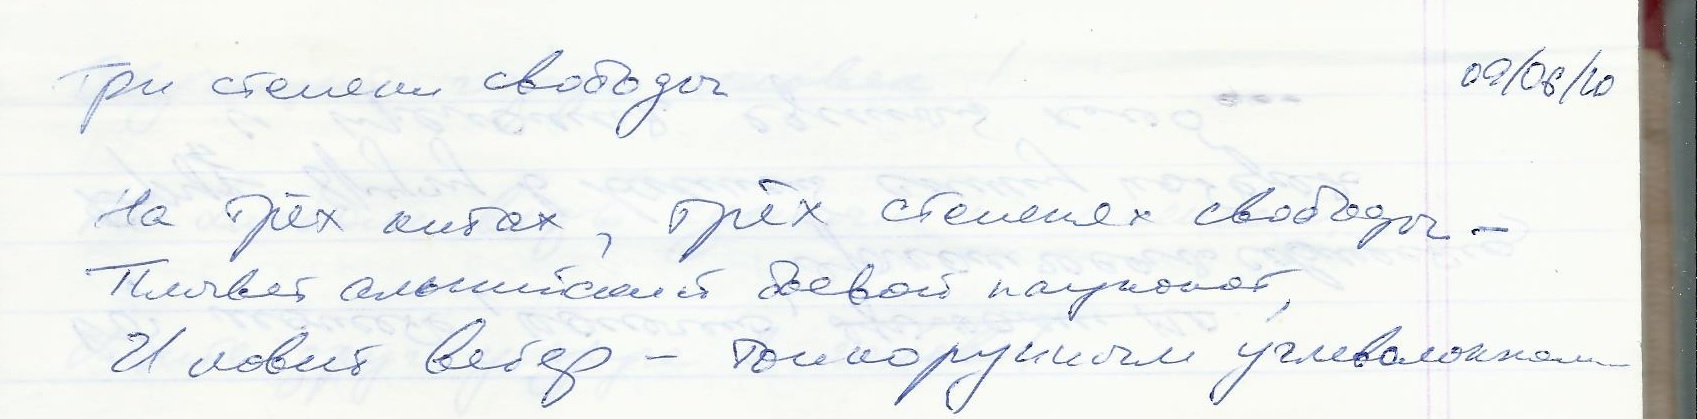 Три степени свободы
09/06/20
На трёх китах, трёх степенях свободы –
Плывёт альпийский боевой
И ловит ветер – тонкорунным углеволокном